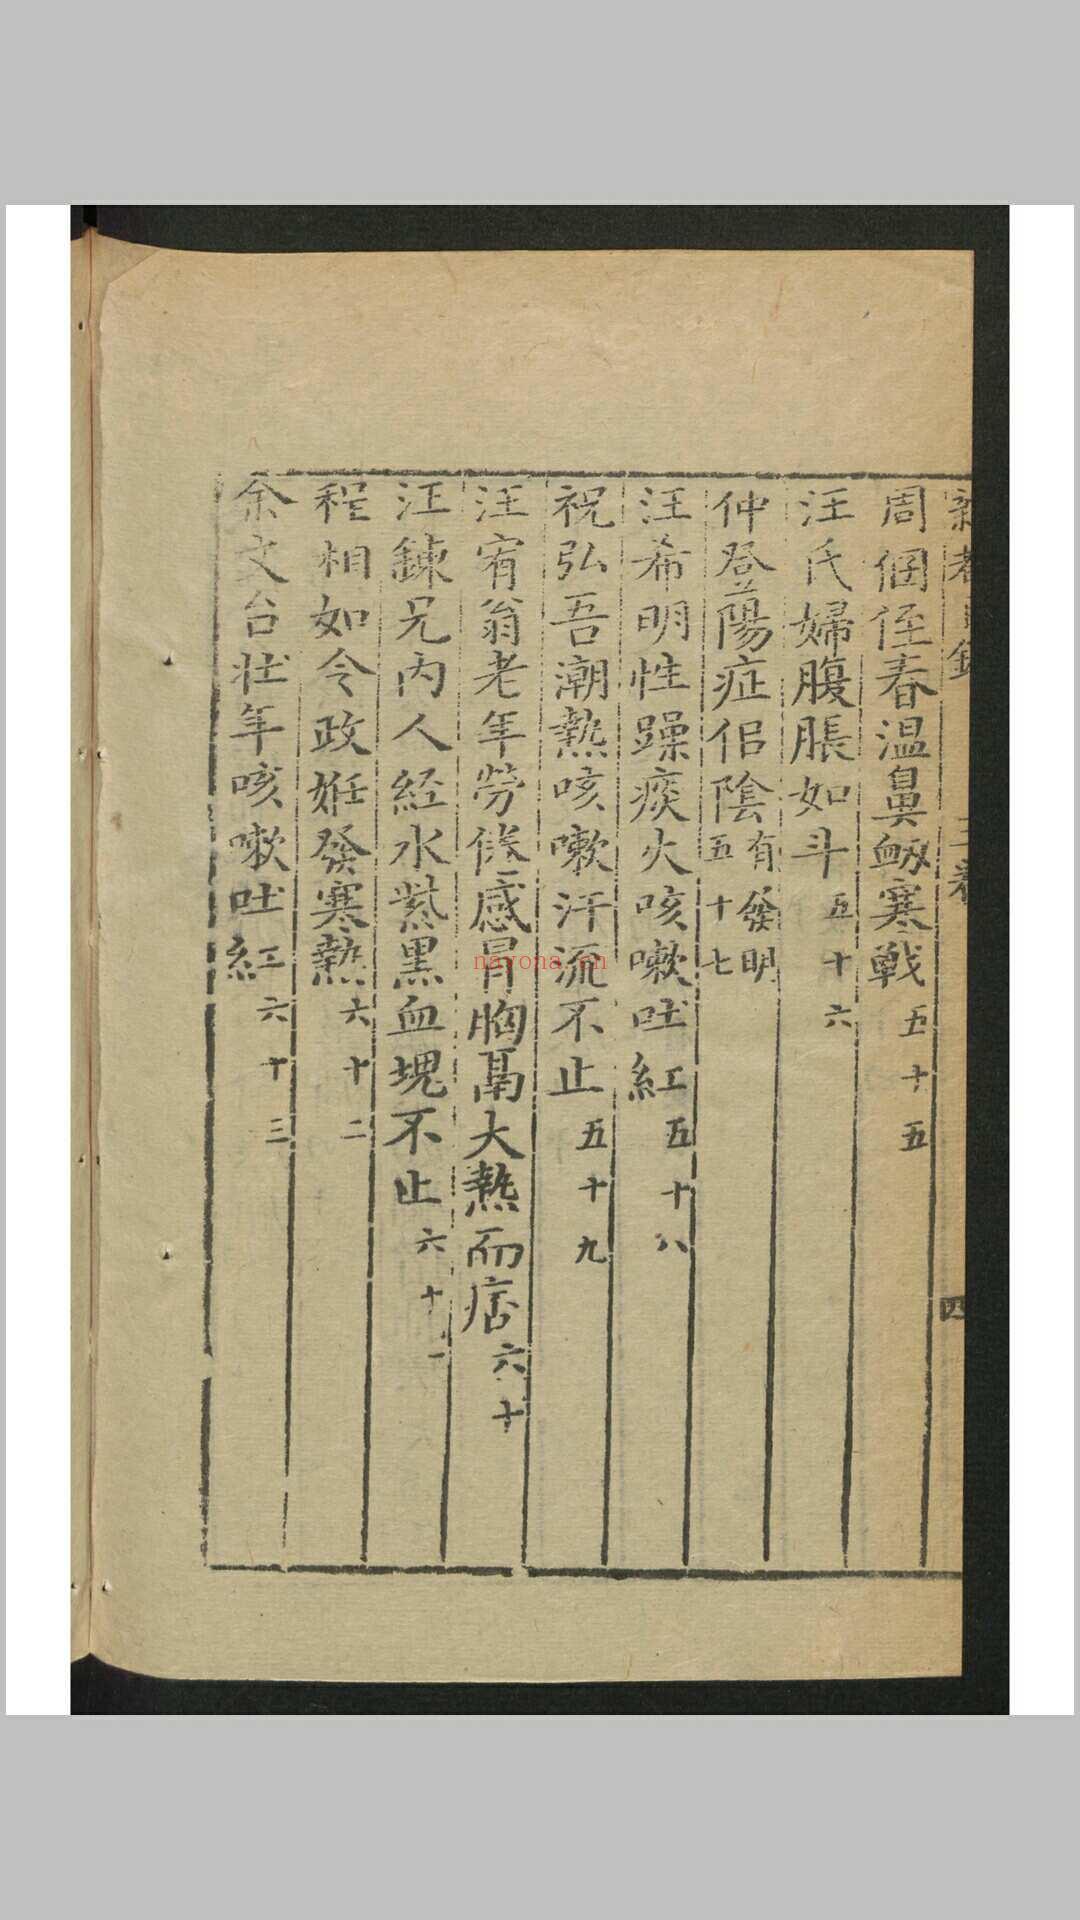 周佪侄春温鼻衂寒戰五十五
汪氏婦腹脹如斗五十六
仲登陽症佀陰有發明五十七
汪希明性躁痰火咳嗽吐紅五十八
祝弘吾潮熱咳嗽汗流不止五十九
汪宥翁老年勞倦感冒胸鬲大熱而痞六十
汪鍊兄内人經水紫黒血塊不止六十一
程相如令政姙發寒熱六十二
余文台壮年咳嗽吐紅六十三
四
nayona.cn